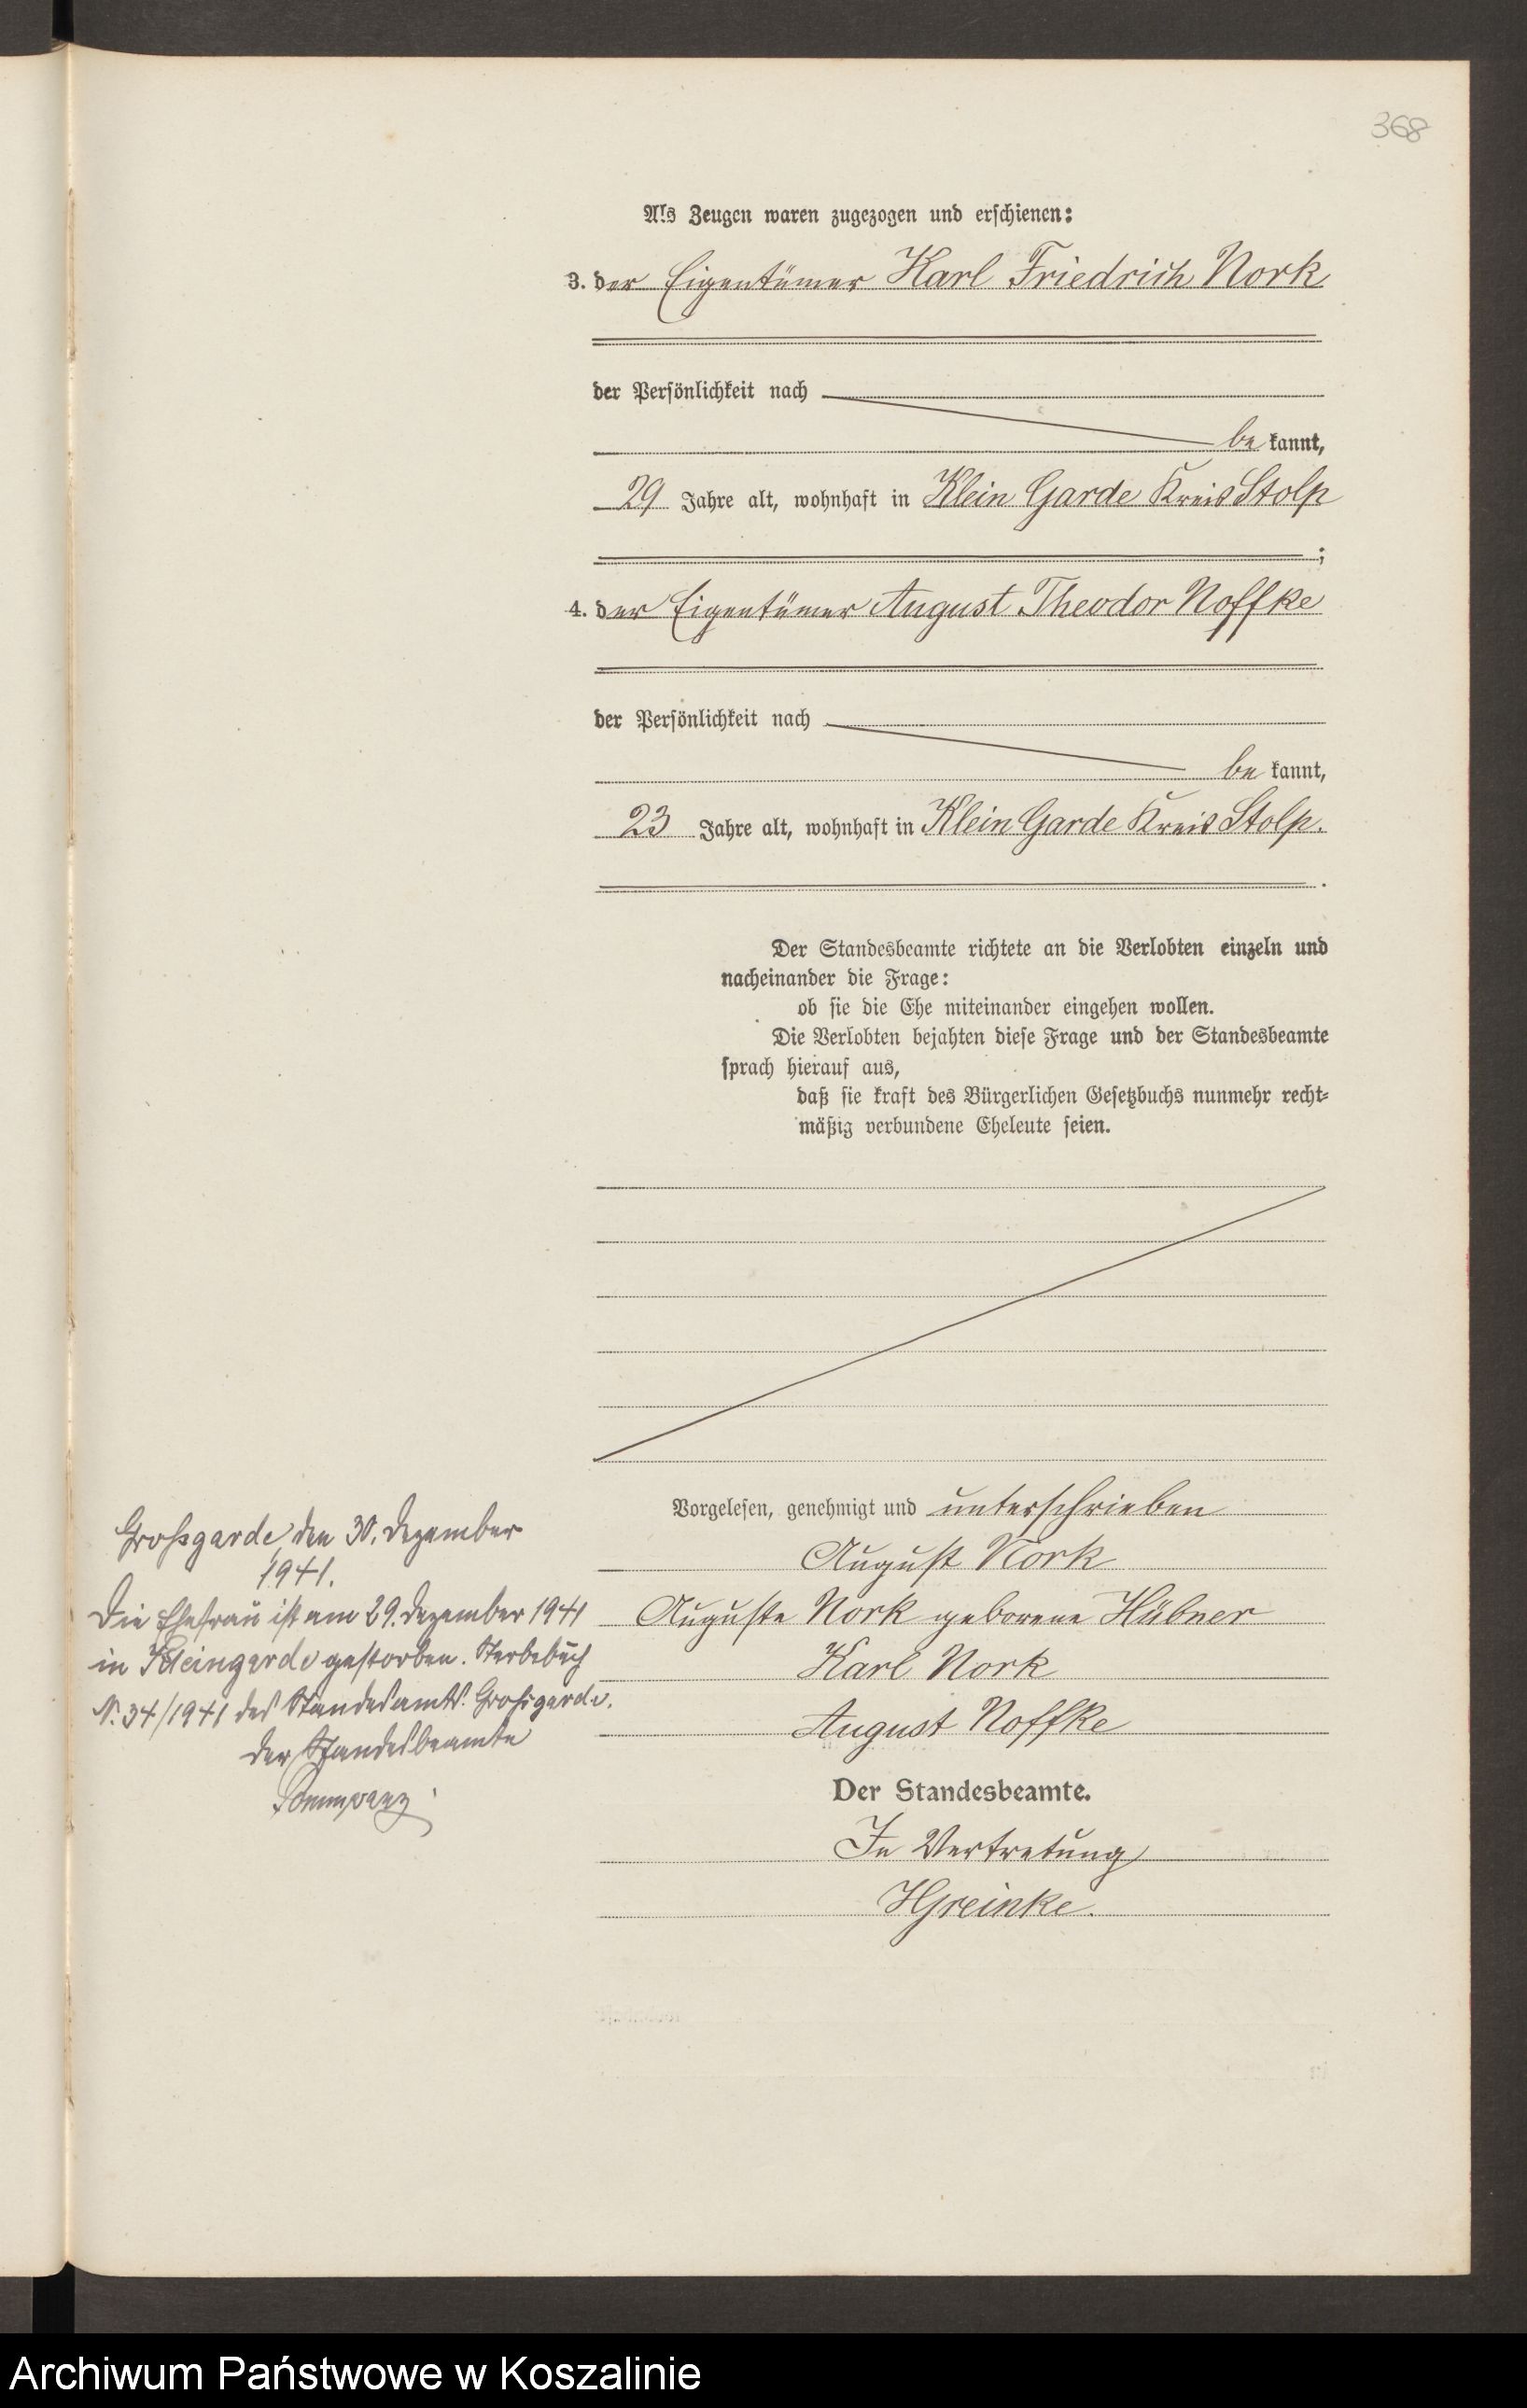 368
Als Zeugen waren zugezogen und erschienen:
3. der Eigentümer Karl Friedrich Nork
der Persönlichkeit nach
be kannt,
29 Jahre alt, wohnhaft in Klein Garde Kreis Stolp
;
4. der Eigentümer August Theodor Noffke
der Persönlichkeit nach
be kannt,
23 Jahre alt, wohnhaft in Klein Garde Kreis Stolp.
.
Der Standesbeamte richtete an die Verlobten einzeln und
nacheinander die Frage:
ob sie die Ehe miteinander eingehen wollen.
Die Verlobten bejahten diese Frage und der Standesbeamte
sprach hierauf aus,
daß sie kraft des Bürgerlichen Gesetzbuchs nunmehr recht-
mäßig verbundene Eheleute seien.
Vorgelesen, genehmigt und unterschrieben
August Nork
Auguste Nork geborene Hübner
Karl Nork
August Noffke
Der Standesbeamte.
In Vertretung
HGreinke.
Großgarde, den 30. Dezember
1941.
Die Ehefrau ist am 29. Dezember 1941
in Kleingarde gestorben. Sterbebuch
N. 34/1941 des Standesamts Großgarde.
Der Standesbeamte
Archiwum Państwowe w Koszalinie